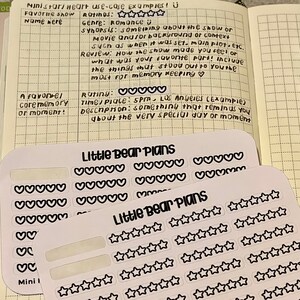 Mini Star/Heart use-case examples! :)
Favorite Show Rating:
Name here Genre: Romance :)
Synopsis: Something about the show or
movie and/or background or context
such as when it set, main plot, etc.
Review: How the show made you feel or
what was your favorite part! Include
the things that stood out to you the
most for memory keeping
A favorite Rating:
core memory Time/place: 5pm - Los Angeles (example)
or moment! Description: Something that reminds you
about the very special day or moment
Little Bear Plans
Little Bear Plans
Mini